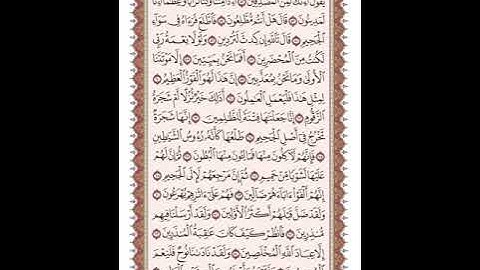 يَقُولُ أَءِنَّكَ لَمِنَ ٱلْمُصَدِّقِينَ ۝ أَءِذَا مِتْنَا وَكُنَّا تُرَابًا وَعِظَٰمًا أَءِنَّا
لَمَدِينُونَ ۝ قَالَ هَلْ أَنتُم مُّطَّلِعُونَ ۝ فَٱطَّلَعَ فَرَءَاهُ فِى سَوَآءِ
ٱلْجَحِيمِ ۝ قَالَ تَٱللَّهِ إِن كِدتَّ لَتُرْدِينِ ۝ وَلَوْلَا نِعْمَةُ رَبِّى
لَكُنتُ مِنَ ٱلْمُحْضَرِينَ ۝ أَفَمَا نَحْنُ بِمَيِّتِينَ ۝ إِلَّا مَوْتَتَنَا
ٱلْأُولَىٰ وَمَا نَحْنُ بِمُعَذَّبِينَ ۝ إِنَّ هَٰذَا لَهُوَ ٱلْفَوْزُ ٱلْعَظِيمُ ۝
لِمِثْلِ هَٰذَا فَلْيَعْمَلِ ٱلْعَٰمِلُونَ ۝ أَذَٰلِكَ خَيْرٌ نُّزُلًا أَمْ شَجَرَةُ
ٱلزَّقُّومِ ۝ إِنَّا جَعَلْنَٰهَا فِتْنَةً لِّلظَّٰلِمِينَ ۝ إِنَّهَا شَجَرَةٌ
تَخْرُجُ فِىٓ أَصْلِ ٱلْجَحِيمِ ۝ طَلْعُهَا كَأَنَّهُۥ رُءُوسُ ٱلشَّيَٰطِينِ
۝ فَإِنَّهُمْ لَءَاكِلُونَ مِنْهَا فَمَالِـُٔونَ مِنْهَا ٱلْبُطُونَ ۝ ثُمَّ إِنَّ لَهُمْ
عَلَيْهَا لَشَوْبًا مِّنْ حَمِيمٍ ۝ ثُمَّ إِنَّ مَرْجِعَهُمْ لَإِلَى ٱلْجَحِيمِ ۝
إِنَّهُمْ أَلْفَوْا۟ ءَابَآءَهُمْ ضَآلِّينَ ۝ فَهُمْ عَلَىٰٓ ءَاثَٰرِهِمْ يُهْرَعُونَ ۝
وَلَقَدْ ضَلَّ قَبْلَهُمْ أَكْثَرُ ٱلْأَوَّلِينَ ۝ وَلَقَدْ أَرْسَلْنَا فِيهِم
مُّنذِرِينَ ۝ فَٱنظُرْ كَيْفَ كَانَ عَٰقِبَةُ ٱلْمُنذَرِينَ ۝
إِلَّا عِبَادَ ٱللَّهِ ٱلْمُخْلَصِينَ ۝ وَلَقَدْ نَادَىٰنَا نُوحٌ فَلَنِعْمَ